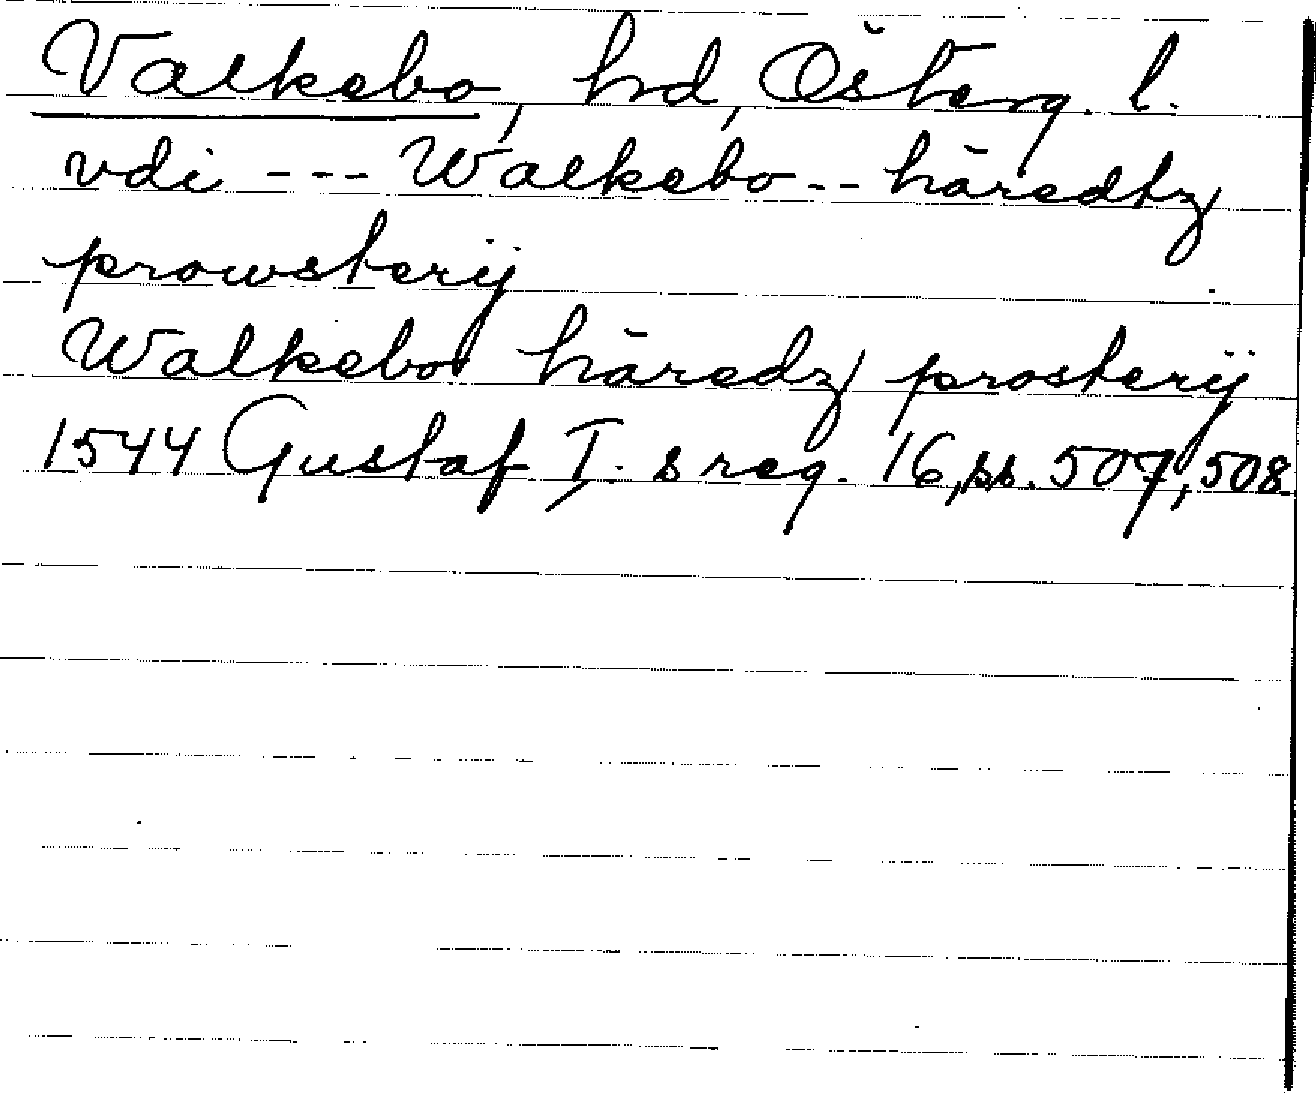 Valkebo, hd, Österg. l.
vdi --- Walkebo -- häredtz
prowsterij
Walkebo häredz prosterij
1544 Gustaf I. s reg. 16, ss. 507, 508.